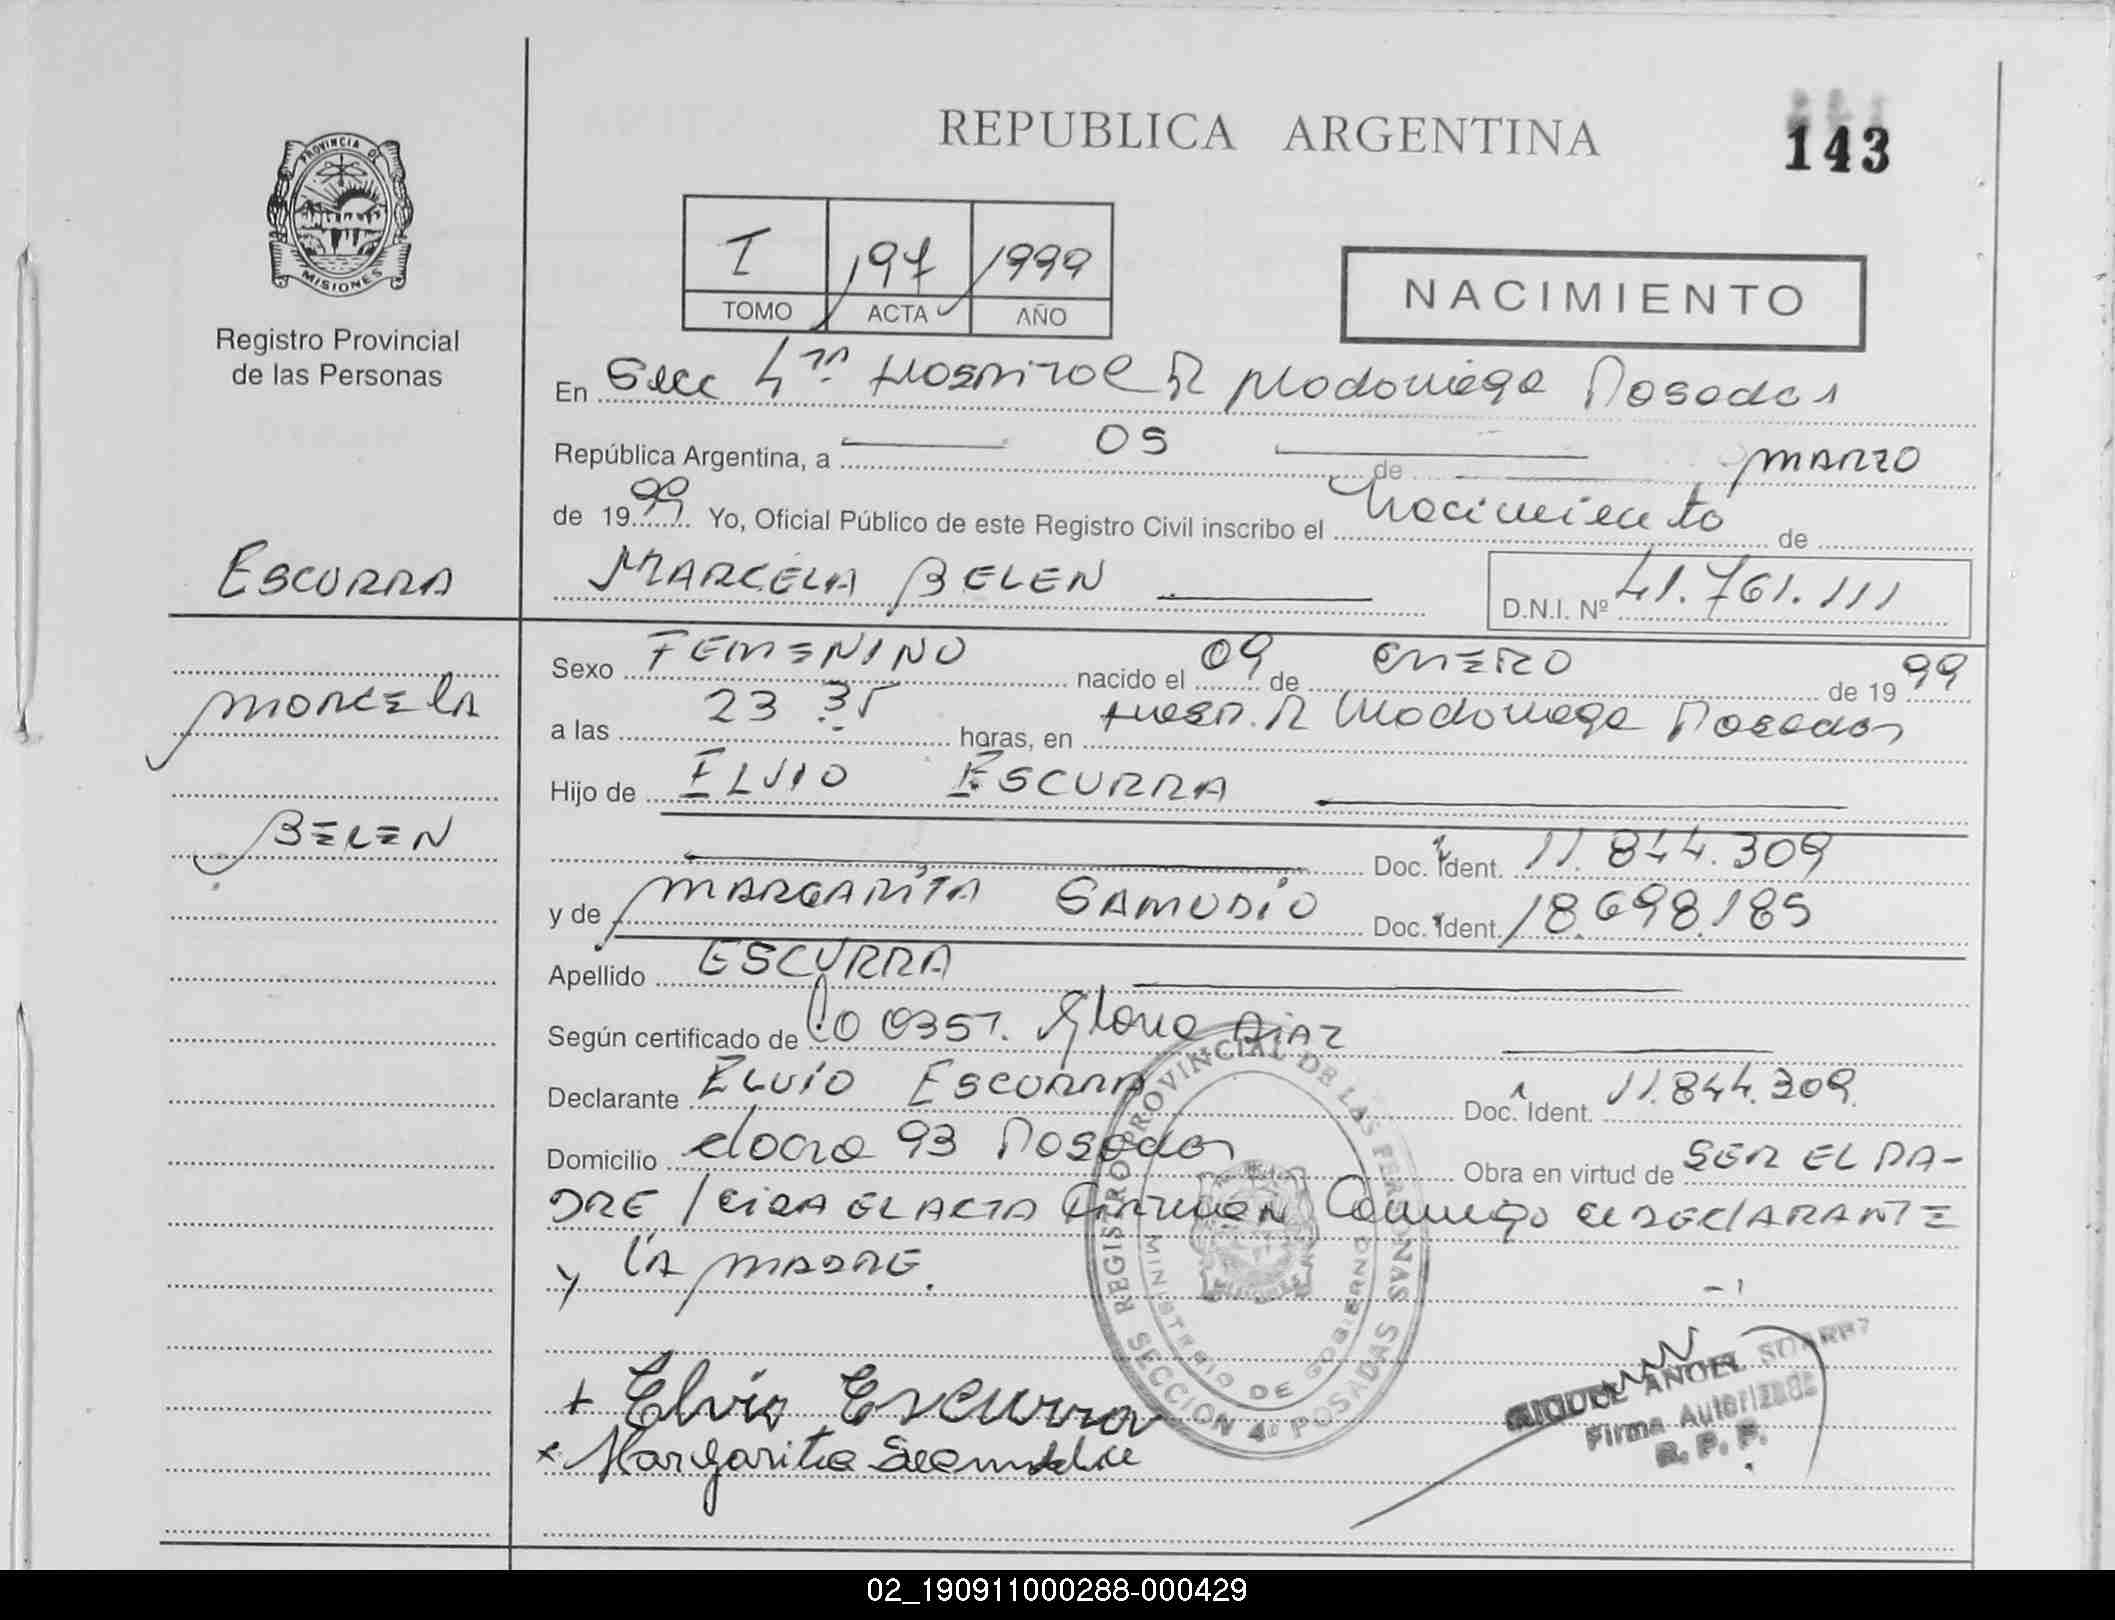 REPUBLICA ARGENTINA
143
PROVINCIA DE
MISIONES
Registro Provincial
de las Personas
I 197 1999
TOMO ACTA AÑO
NACIMIENTO
En Secc 4ta Hospital R Madariaga Posadas
República Argentina, a 05 de marzo
de 1999 Yo, Oficial Público de este Registro Civil inscribo el Nacimiento de
ESCURRA
MARCELA BELEN
D.N.I. Nº 41.761.111
Sexo FEMENINO nacido el 09 de ENERO de 1999
MARCELA
a las 23 35 horas, en Hosp. R Madariaga Posadas
Hijo de ELVIO ESCURRA
BELEN
Doc. Ident. 11.844.309
y de MARGARITA SAMUDIO Doc. Ident. 18.698.185
Apellido ESCURRA
Según certificado de 0357. Gloria DIAZ
Declarante ELVIO ESCURRA Doc. Ident. 11.844.309
Domicilio 93 Posadas Obra en virtud de SER EL PA-
DRE / LEIDA EL ACTA FIRMAN Conmigo el DECLARANTE
Y LA MADRE.
REGISTRO PROVINCIAL DE LAS PERSONAS
MINISTERIO DE GOBIERNO
SECCION 4ª POSADAS
+ Elvio Escurra
x Margarita Samudio
MIGUEL ANGEL SUAREZ
Firma Autorizada
R. P. P.
02_190911000288-000429